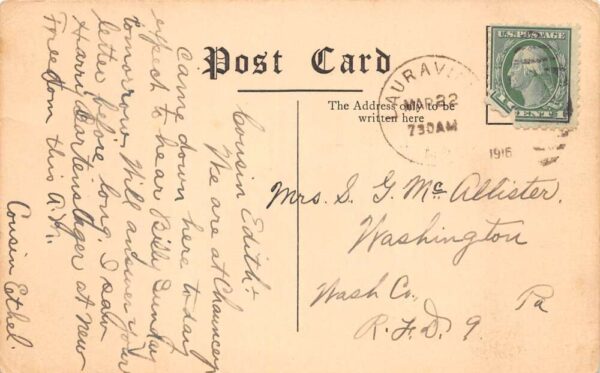 Post Card
The Address only to be
written here
AURAV
MAR 22
730AM
1916
U.S. POSTAGE
CENT 1
Cousin Edith +
We are at Chauncey
came down here today
expect to hear Billy Sunday
tomorrow. Will answer your
letter before long. I saw
Harri at New
Freedom this A.M.
Cousin Ethel.
Mrs. S. G. McAllister.
Washington
Wash Co. Pa
R.F.D. 9.